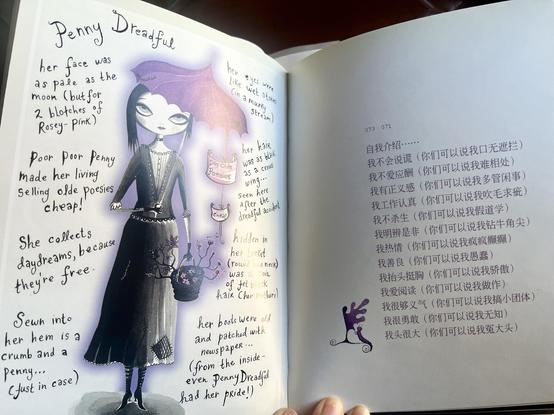 Penny Dreadful
her face was
as pale as the
moon (but for
2 blotches of
Rosey-pink)
Poor Poor Penny
made her living
selling olde Poesies
cheap!
She collects
daydreams, because
they're free.
Sewn into
her hem is a
crumb and a
penny...
(Just in case)
her eyes were
like wet stones
(in a
stream)
her hair
was as black
as a crows
wing...
seen here
after the
dreadful accident
hidden in
her
was a
of jet black
hair (her mothers)
her boots were old
and patched with
newspaper...
(from the inside-
even Penny Dreadful
had her pride!)
070 071
自我介绍……
我不会说谎（你们可以说我口无遮拦）
我不爱应酬（你们可以说我难相处）
我有正义感（你们可以说我多管闲事）
我工作认真（你们可以说我吹毛求疵）
我不杀生（你们可以说我假道学）
我明辨是非（你们可以说我钻牛角尖）
我热情（你们可以说我疯疯癫癫）
我善良（你们可以说我愚蠢）
我抬头挺胸（你们可以说我骄傲）
我爱阅读（你们可以说我做作）
我很够义气（你们可以说我搞小团体）
我很勇敢（你们可以说我无知）
我头很大（你们可以说我冤大头）